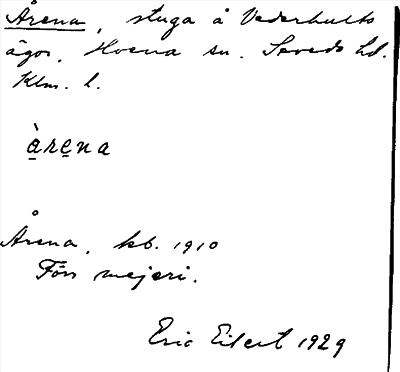 Årena, stuga å Vederhults
ägor, Hvena sn. Sevede hd.
Klm. l.
àrena
Årena, kb. 1910
Förr mejeri.
Eric Eilert 1929